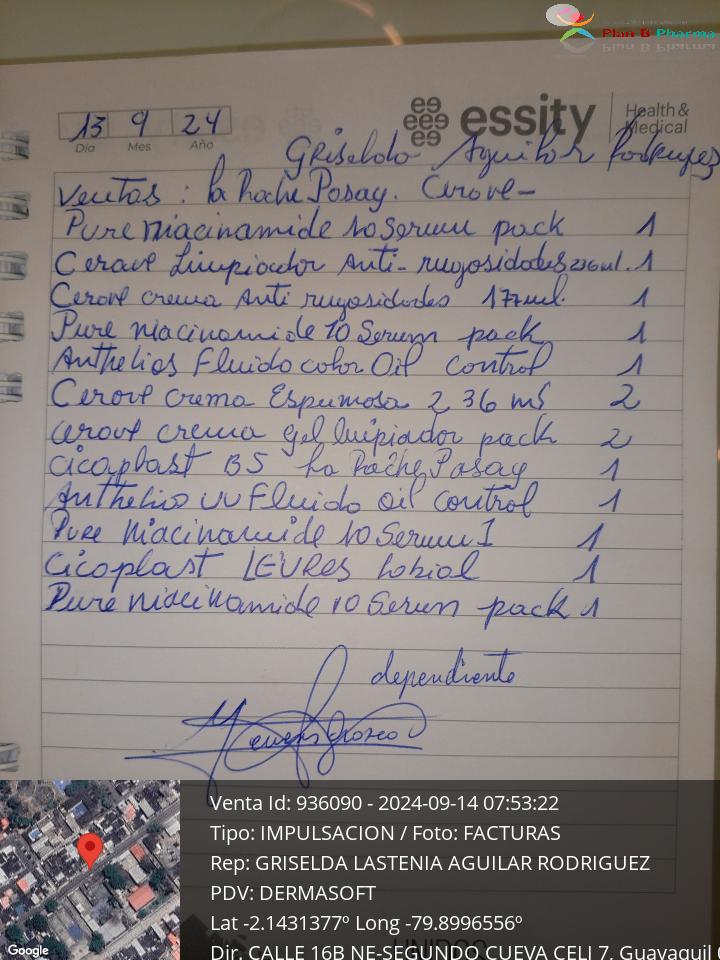 Plan B Pharma
13 9 24
Día Mes Año
essity Health & Medical
Griselda Aguilar Rodriguez
Ventas : la Roche Posay. Cerave -
Pure niacinamide 10 Serum pack 1
Cerave Limpiador Anti-rugosidades 236 ml. 1
Cerave crema Anti rugosidades 177 ml. 1
Pure niacinamide 10 Serum pack 1
Anthelios Fluido color Oil control 1
Cerave crema Espumosa 236 ml 2
cerave crema gel limpiador pack 2
Cicaplast B5 La Roche Posay 1
Anthelios UV Fluido oil control 1
Pure Niacinamide 10 Serum I 1
Cicaplast LEVRES Labial 1
Pure niacinamide 10 Serum pack 1
dependiente
Venta Id: 936090 - 2024-09-14 07:53:22
Tipo: IMPULSACION / Foto: FACTURAS
Rep: GRISELDA LASTENIA AGUILAR RODRIGUEZ
PDV: DERMASOFT
Lat -2.1431377º Long -79.8996556º
Dir. CALLE 16B NE-SEGUNDO CUEVA CELI 7, Guayaquil
Google